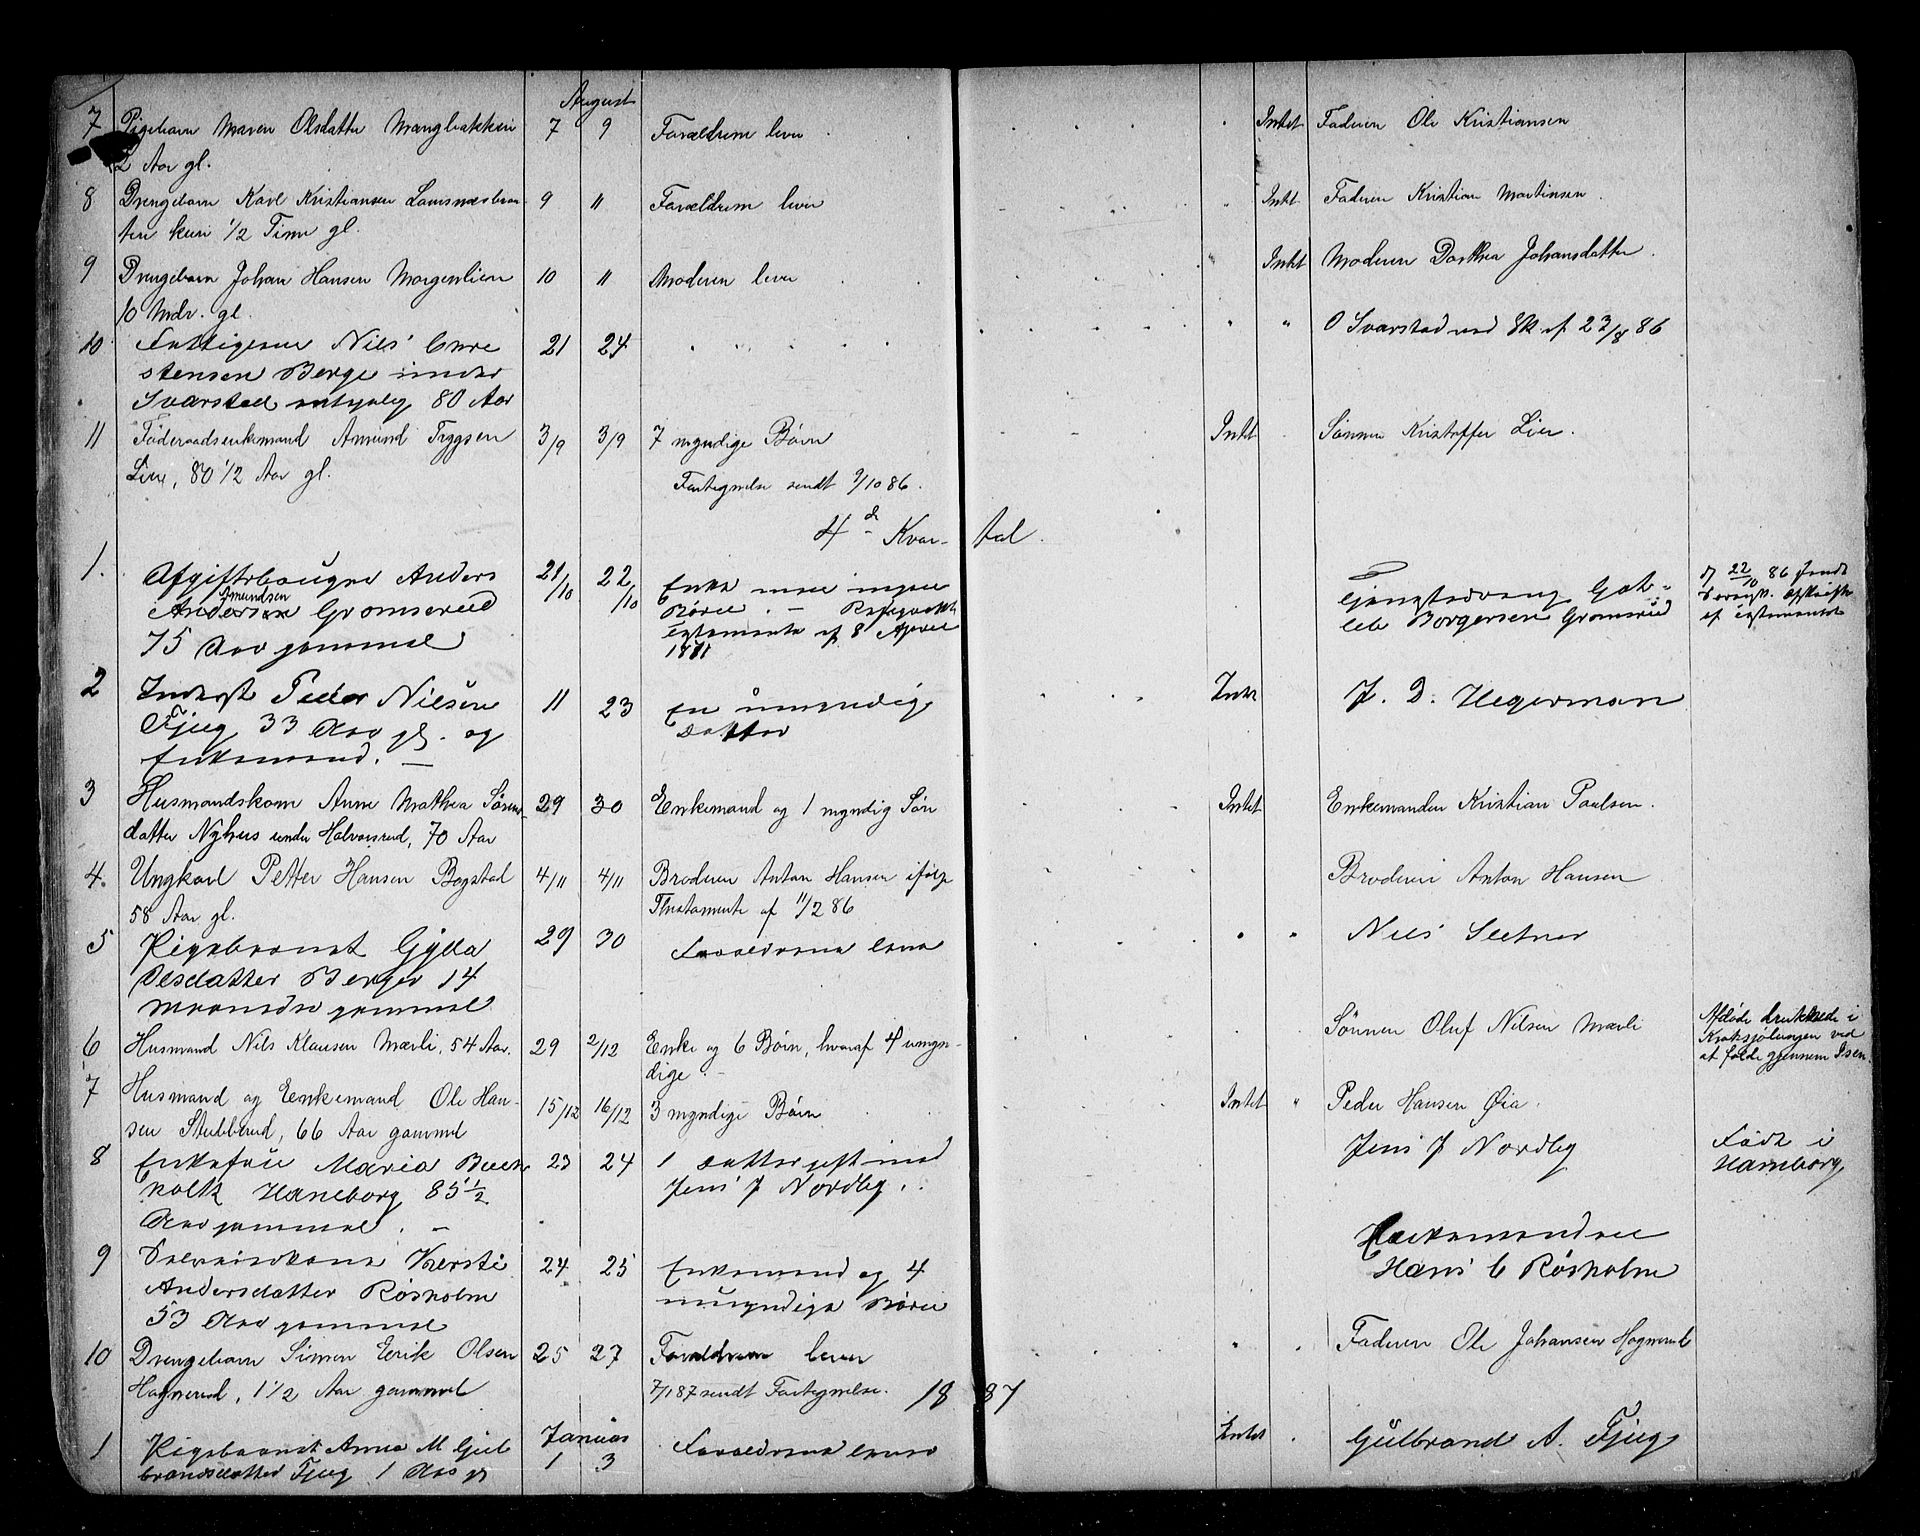 August
7 Pigebarn Maren Olsdatter Mangbakken 7 9 Forældrene lever Intet Faderen Ole Kristiansen
2 Aar gl.
8 Drengebarn Karl Kristiansen 9 11 Forældrene lever Intet Faderen Kristian Martinsen
kun 1/2 Time gl.
9 Drengebarn Johan Hansen Morgenlien 10 11 Moderen lever Intet Moderen Dorthea Johansdatter
10 Mdr. gl.
10 Nils 21 24 O Svarstad ved Sk af 23/8 86
stensen Berge under
Svarstad 80 Aar
11 Føderaadsenkemand Amund Tryggsen 3/9 3/9 7 myndige Børn Intet Sønnen Kristoffer Lier.
Lier, 80 1/2 Aar gl.
Fortegnelse sendt 9/10 86.
4de Kvar- tal.
1. Anders 21/10 22/10 Enke men ingen 22/10 86
Amundsen
Andersen Gromsrud Børn. Borgersen Gromsrud
75 Aar gammel testamente af 8 April
2 Inderst Peder Nilsen 11 23 En umyndig Intet J. D. Hegerman
Fjug 33 Aar gl. og Datter
Enkemand.
3 Husmandskone Anne Mathea Søren- 29 30 Enkemand og 1 myndig Søn Intet Enkemanden Kristian Paulsen.
datter Nyhus under Halvorsrud, 70 Aar
4. Ungkarl Petter Hansen Bogstad 4/11 4/11 Broderen Anton Hansen ifølge Broderen Anton Hansen
58 Aar gl. Thestamente af 11/2 86
5 Pigebarnet Gylla 29 30 Forældrene lever Nils Sletner
Olsdatter Berger 14
Maaneder gammel
6 Husmand Nils Klausen Mærli, 54 Aar. 29 2/12 Enke og 6 Børn, hvoraf 4 umyn- Sønnen Oluf Nilsen Mærli Afdøde druknede i
dige. Kroksjøtungen ved
at falde gjennem Isen
7 Husmand og Enkemand Ole Han- 15/12 16/12 3 myndige Børn Intet Peder Hansen Øia.
sen Stubberud, 66 Aar gammel
8 Enkefru Maria Buch- 23 24 1 Datter gift med Jens J Nordby Født i
holtz Haneborg 85 1/2 Jens J Nordby. Haneborg
Aar gammel.
9 Kjersti 24 25 Enkemand og 4 Enkemanden
Andersdatter Røsholm umyndige Børn Hans C Røsholm
53 Aar gammel
10 Drengebarn Simon Eerik Olsen 25 27 Forældrene lever Faderen Ole Johansen Hognerud
Hognerud, 1 1/2 Aar gammel 7/1 87 sendt Fortegnelse.
18 87
Januar
1 Pigebarnet Anna M Gul- 1 3 Forældrene lever Intet Gulbrand A. Fjug
brandsdatter Fjug 1 Aar gl